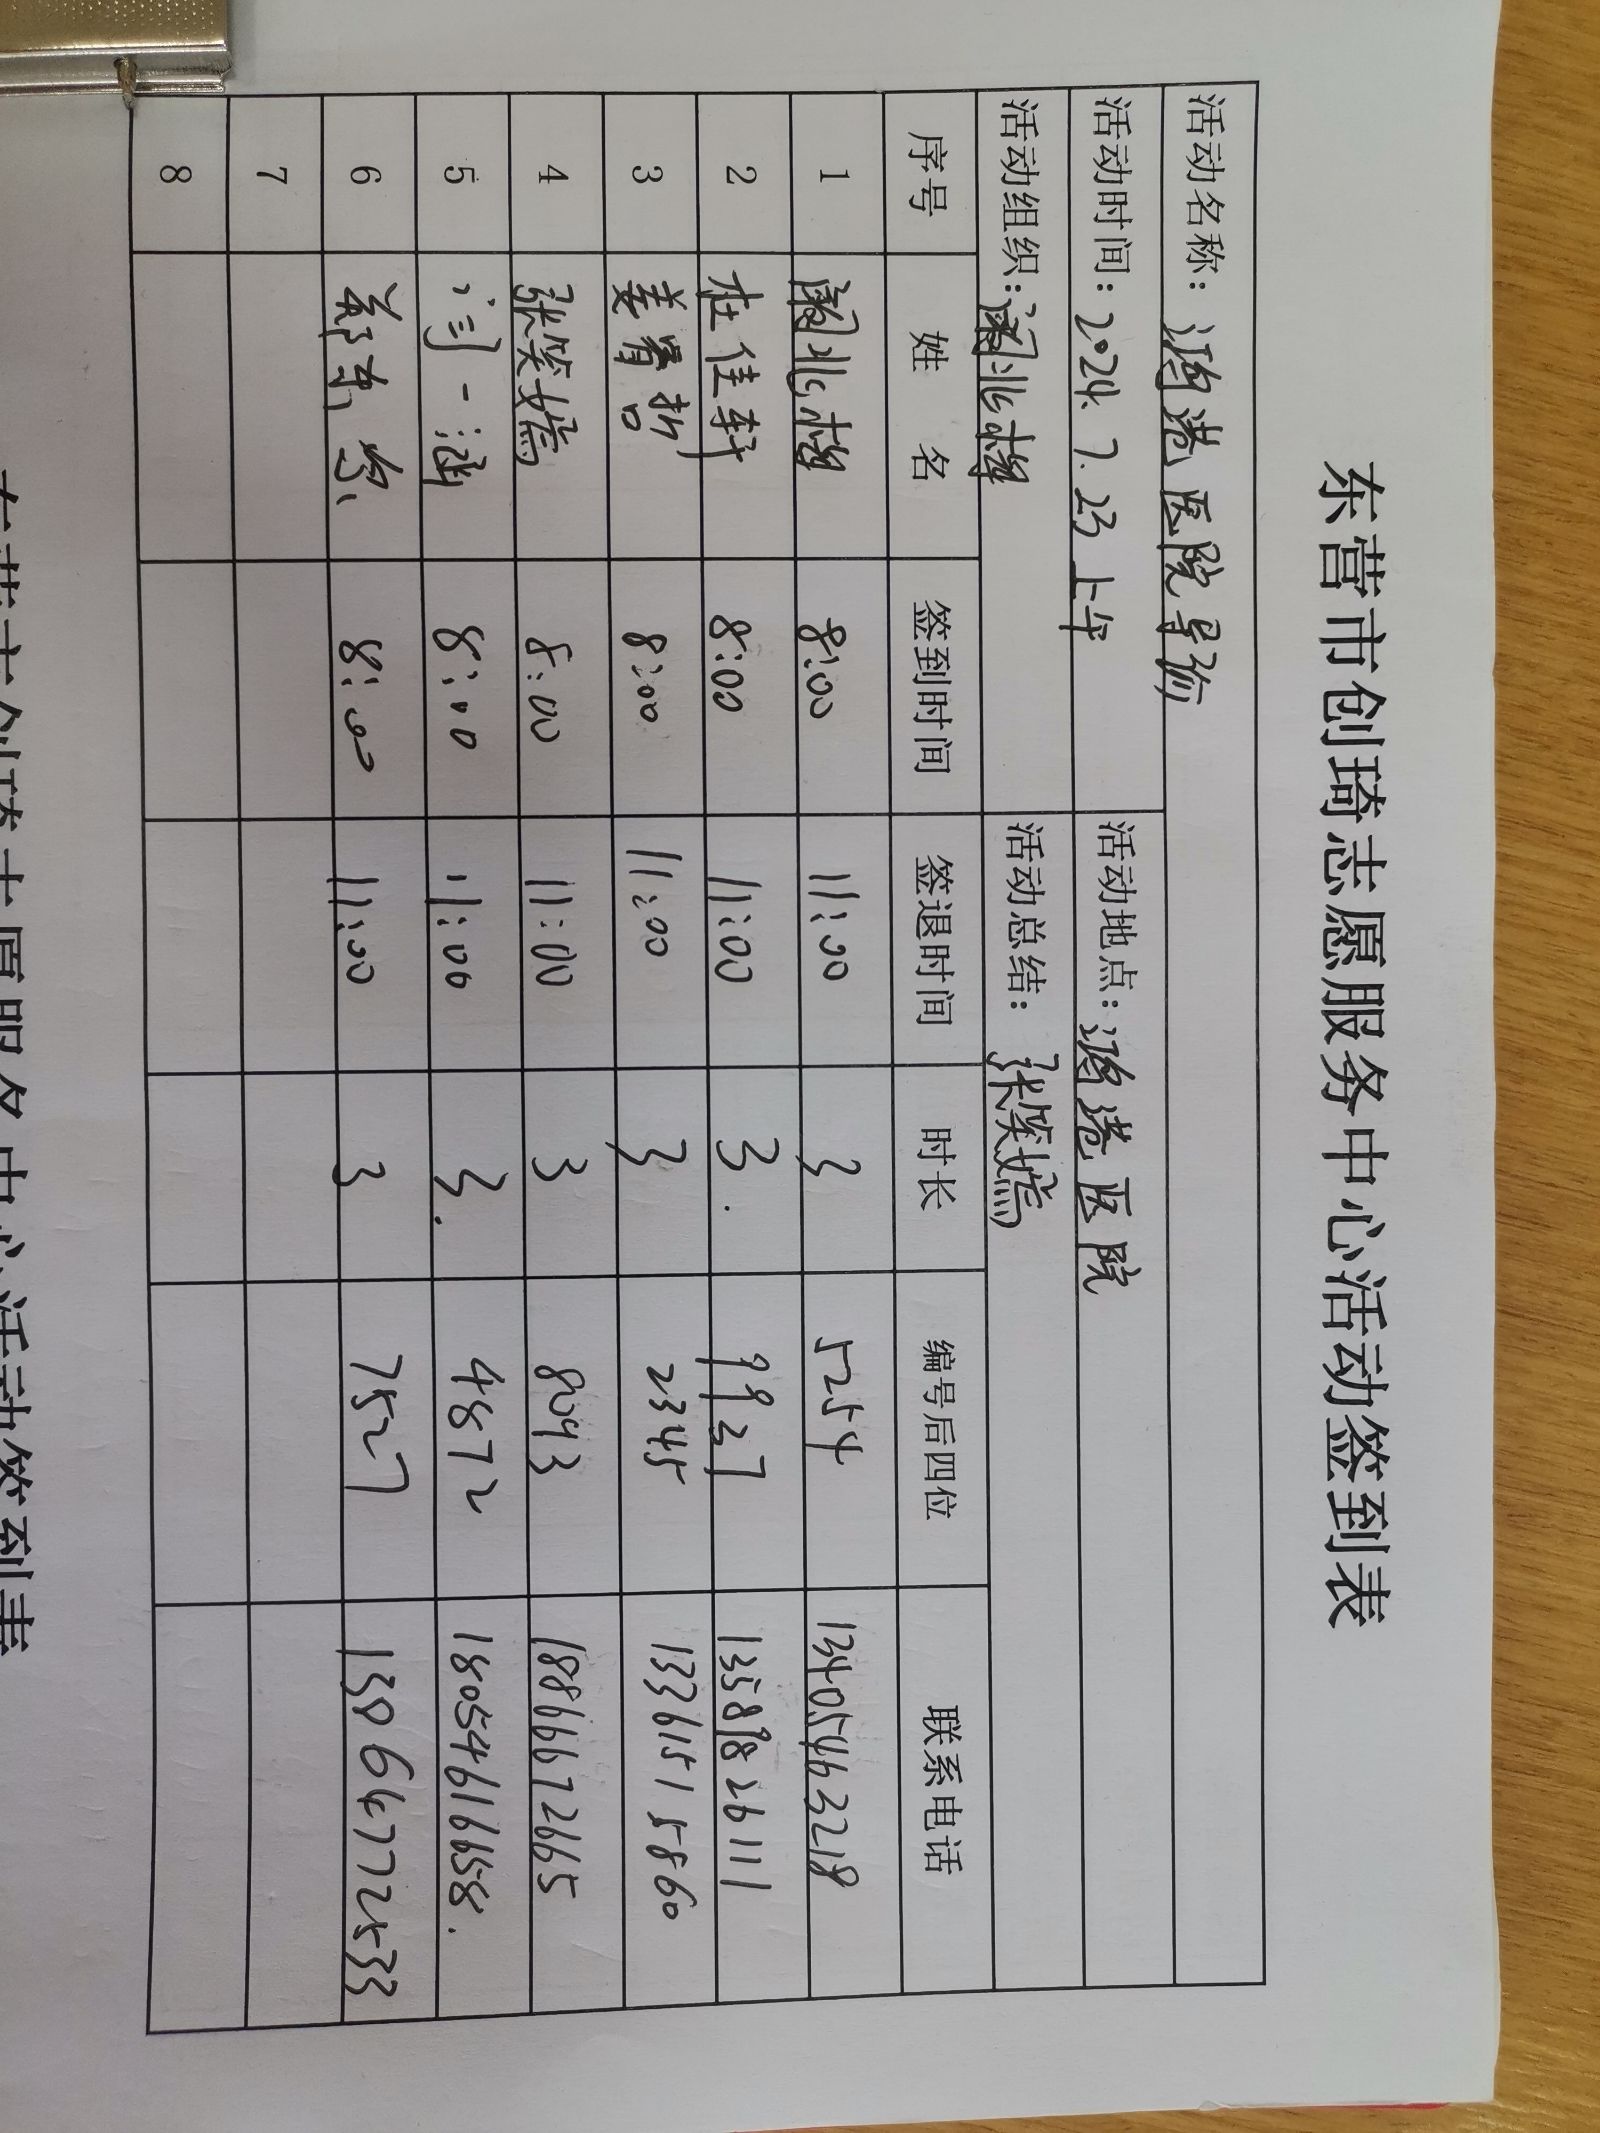 东营市创琦志愿服务中心活动签到表
活动名称：鸿港医院导诊
活动时间：2024.7.23上午 活动地点：鸿港医院
活动组织： 活动总结：张笑嫣
序号 姓名 签到时间 签退时间 时长 编号后四位 联系电话
1 8:00 11:00 3 5254 13405463218
2 杜佳轩 8:00 11:00 3. 9937 13589826111
3 姜睿哲 8:00 11:00 3 2345 13361515860
4 张笑嫣 8:00 11:00 3 8093 18866672665
5 闫一涵 8:00 11:00 3. 4872 18054616658.
6 8:00 11:00 3 7527 13064772533
7
8
东营市创琦志愿服务中心活动签到表